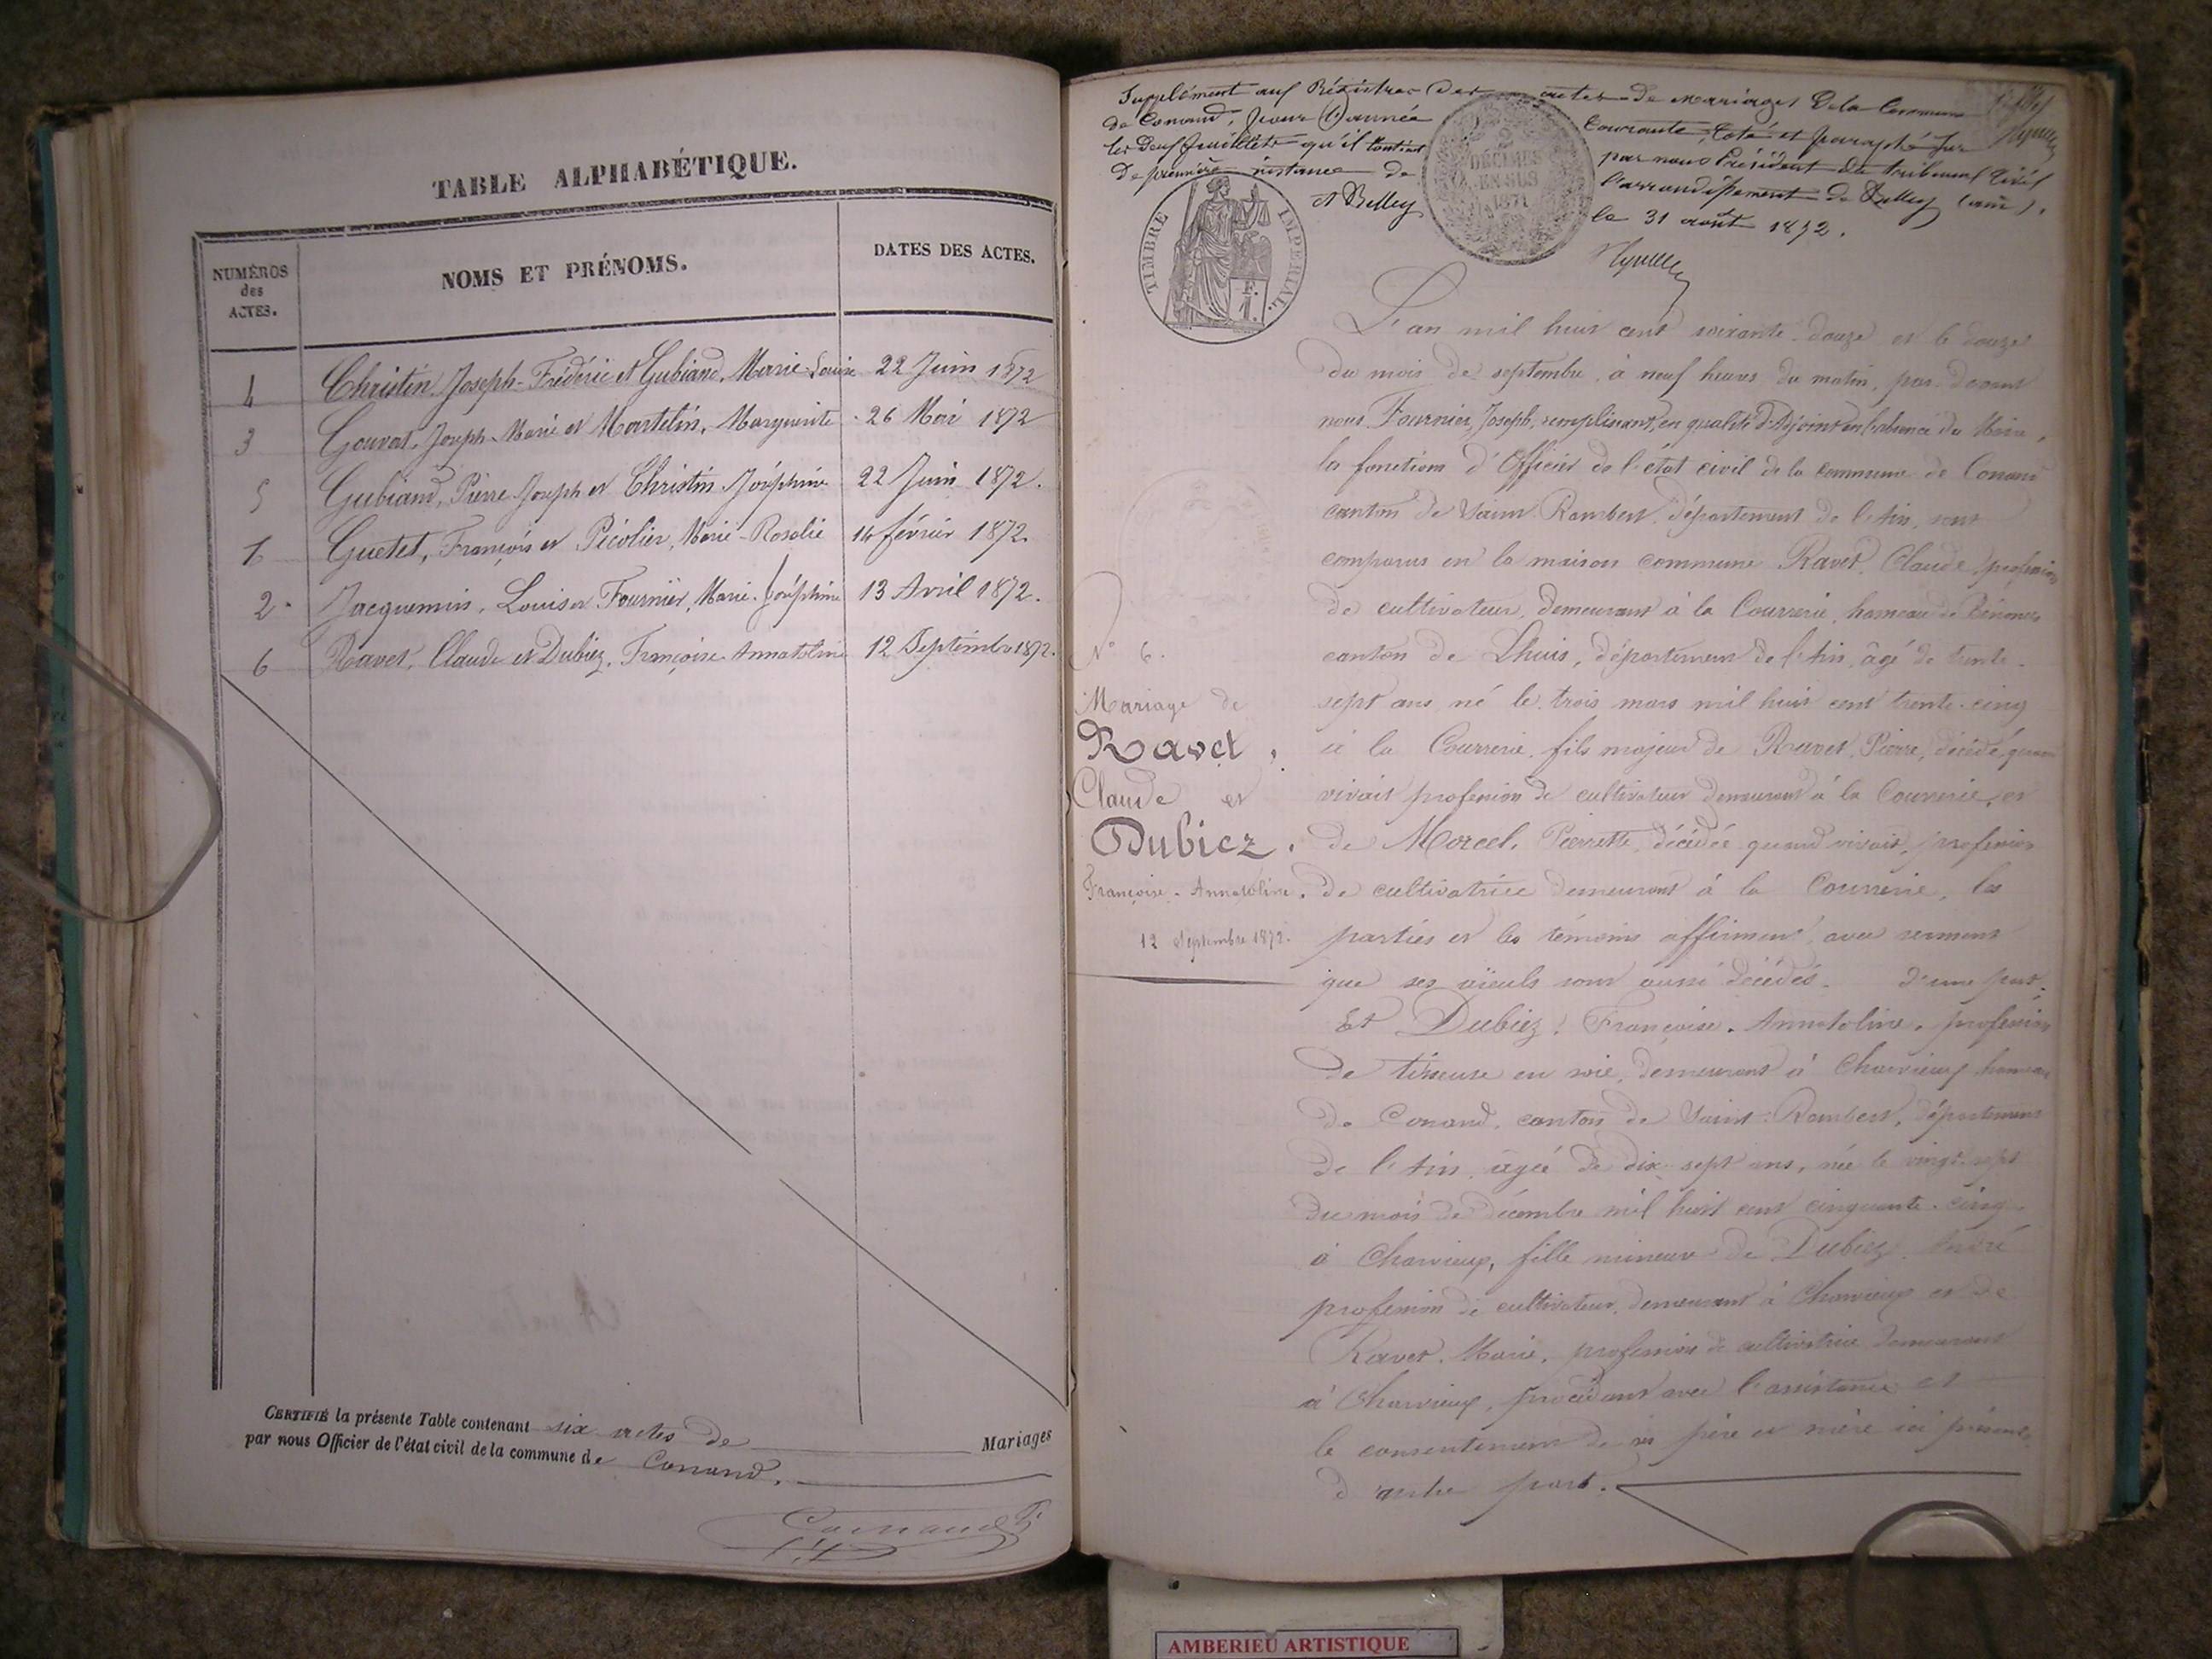 TABLE ALPHABÉTIQUE.
NUMÉROS des ACTES.
NOMS ET PRÉNOMS.
DATES DES ACTES.
4 Christin Joseph-Frédéric et Gubiand, Marie-Louise 22 Juin 1872
3 Gouvat, Joseph-Marie et Martelin, Marguerite 26 Mai 1872
5 Gubiand, Pierre Joseph et Christin Joséphine 22 Juin 1872.
1 Guetet, François et Pécolier, Marie-Rosalie 14 février 1872.
2 Jacquemin, Louis et Fournier, Marie-Joséphine 13 Avril 1872.
6 Ravet, Claude et Dubiez, Françoise Annatoline 12 Septembre 1872.
CERTIFIÉ la présente Table contenant six actes de Mariages
par nous Officier de l'état civil de la commune de Conand.
Supplément aux Régistres des actes de mariages de la Commune
de Conand, pour l'année courante, Coté et paraphé sur
les deux feuillets qu'il contient par nous Président du tribunal Civil
de première instance de l'arrondissement de Belley (ain).
A Belley le 31 août 1872.
2 DÉCIMES EN SUS 1871
TIMBRE IMPÉRIAL.
F. 1.
L'an mil huit cent soixante-douze et le douze
du mois de septembre, à neuf heures du matin, par-devant
nous Fournier, Joseph, remplissant, en qualité d'Adjoint en l'absence du Maire,
les fonctions d'Officier de l'état civil de la commune de Conand
canton de Saint-Rambert, département de l'Ain, sont
comparus en la maison commune Ravet, Claude, profession
de cultivateur, demeurant à la Courrerie, hameau de
canton de Lhuis, département de l'Ain, âgé de trente-
sept ans, né le trois mars mil huit cent trente-cinq
à la Courrerie, fils majeur de Ravet, Pierre, décédé, quand
vivait profession de cultivateur demeurant à la Courrerie, et
de Morcel, Pierrette, décédée quand vivait, profession
de cultivatrice demeurant à la Courrerie, les
parties et les témoins affirment avec serment
que ses aïeuls sont aussi décédés. d'une part.
Et Dubiez, Françoise-Annatoline, profession
de tisseuse en soie, demeurant à Charvieux hameau
de Conand, canton de Saint-Rambert, département
de l'Ain, âgée de dix-sept ans, née le vingt-sept
du mois de décembre mil huit cent cinquante-cinq
à Charvieux, fille mineure de Dubiez, André
profession de cultivateur, demeurant à Charvieux et de
Ravet, Marie, profession de cultivatrice demeurant
à Charvieux, procédant avec l'assistance et
le consentement de ses père et mère ici présents
d'autre part.
N° 6.
Mariage de
Ravet,
Claude et
Dubiez.
Françoise-Annatoline.
12 Septembre 1872.
AMBERIEU ARTISTIQUE